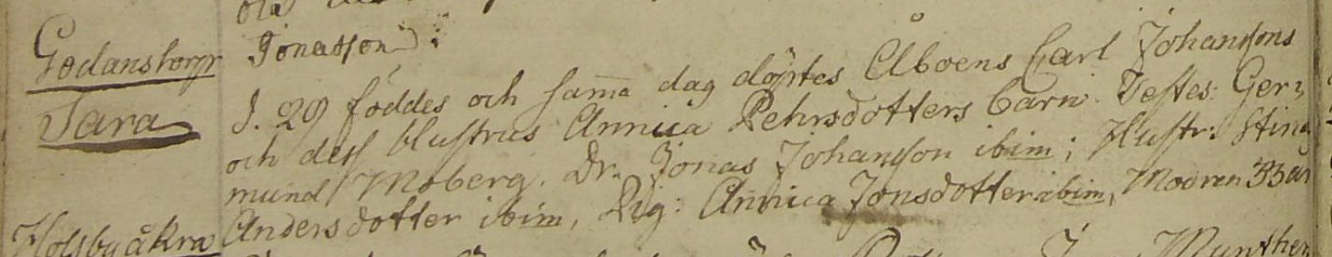 Jonasson:
Godanstorp
Sara
d. 29 föddes och samma dag döptes Åboens Carl Johanssons
och dess hustrus Annica Pehrsdotters barn. Testes: Ger-
mund Moberg. Dr. Jonas Johansson ibim; Hustr: Stina
Andersdotter ibim, Pig: Annica Jonsdotter ibim, Modren 33 år
Holsbyåkra